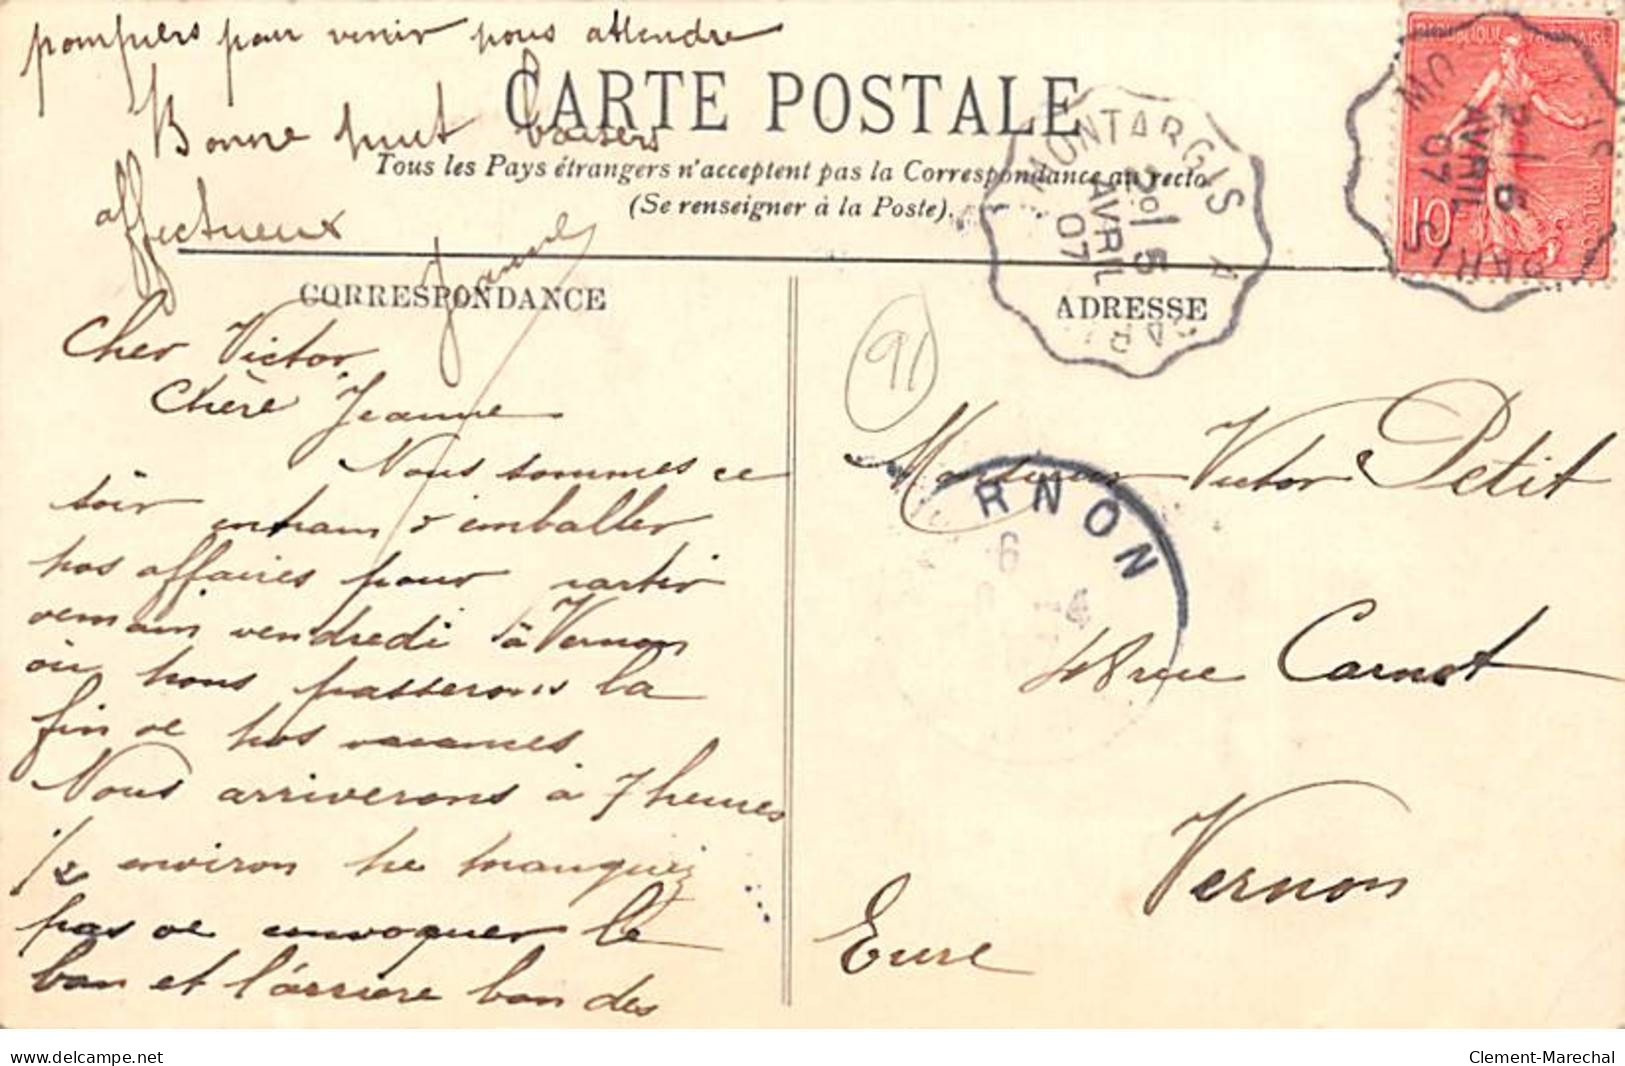 pompiers pour venir nous attendre
CARTE POSTALE
Bonne nuit baisers
Tous les Pays étrangers n'acceptent pas la Correspondance au recto
(Se renseigner à la Poste).
affectueux
CORRESPONDANCE
Cher Victor,
Chère Jeanne
Nous sommes ce
soir entrain d'emballer
nos affaires pour partir
demain vendredi à Vernon
où nous passerons la
fin de nos vacances
Nous arriverons à 7 heures
1/2 environ ne manquez
pas de convoquer le
ban et l'arrière ban des
MONTARGIS A
5
AVRIL
07
ADRESSE
RÉPUBLIQUE FRANÇAISE
10
AVRIL
07
PARIS
91
RNON
6
4
Monsieur Victor Petit
48 rue Carnot
Vernon
Eure
www.delcampe.net
Clement-Marechal